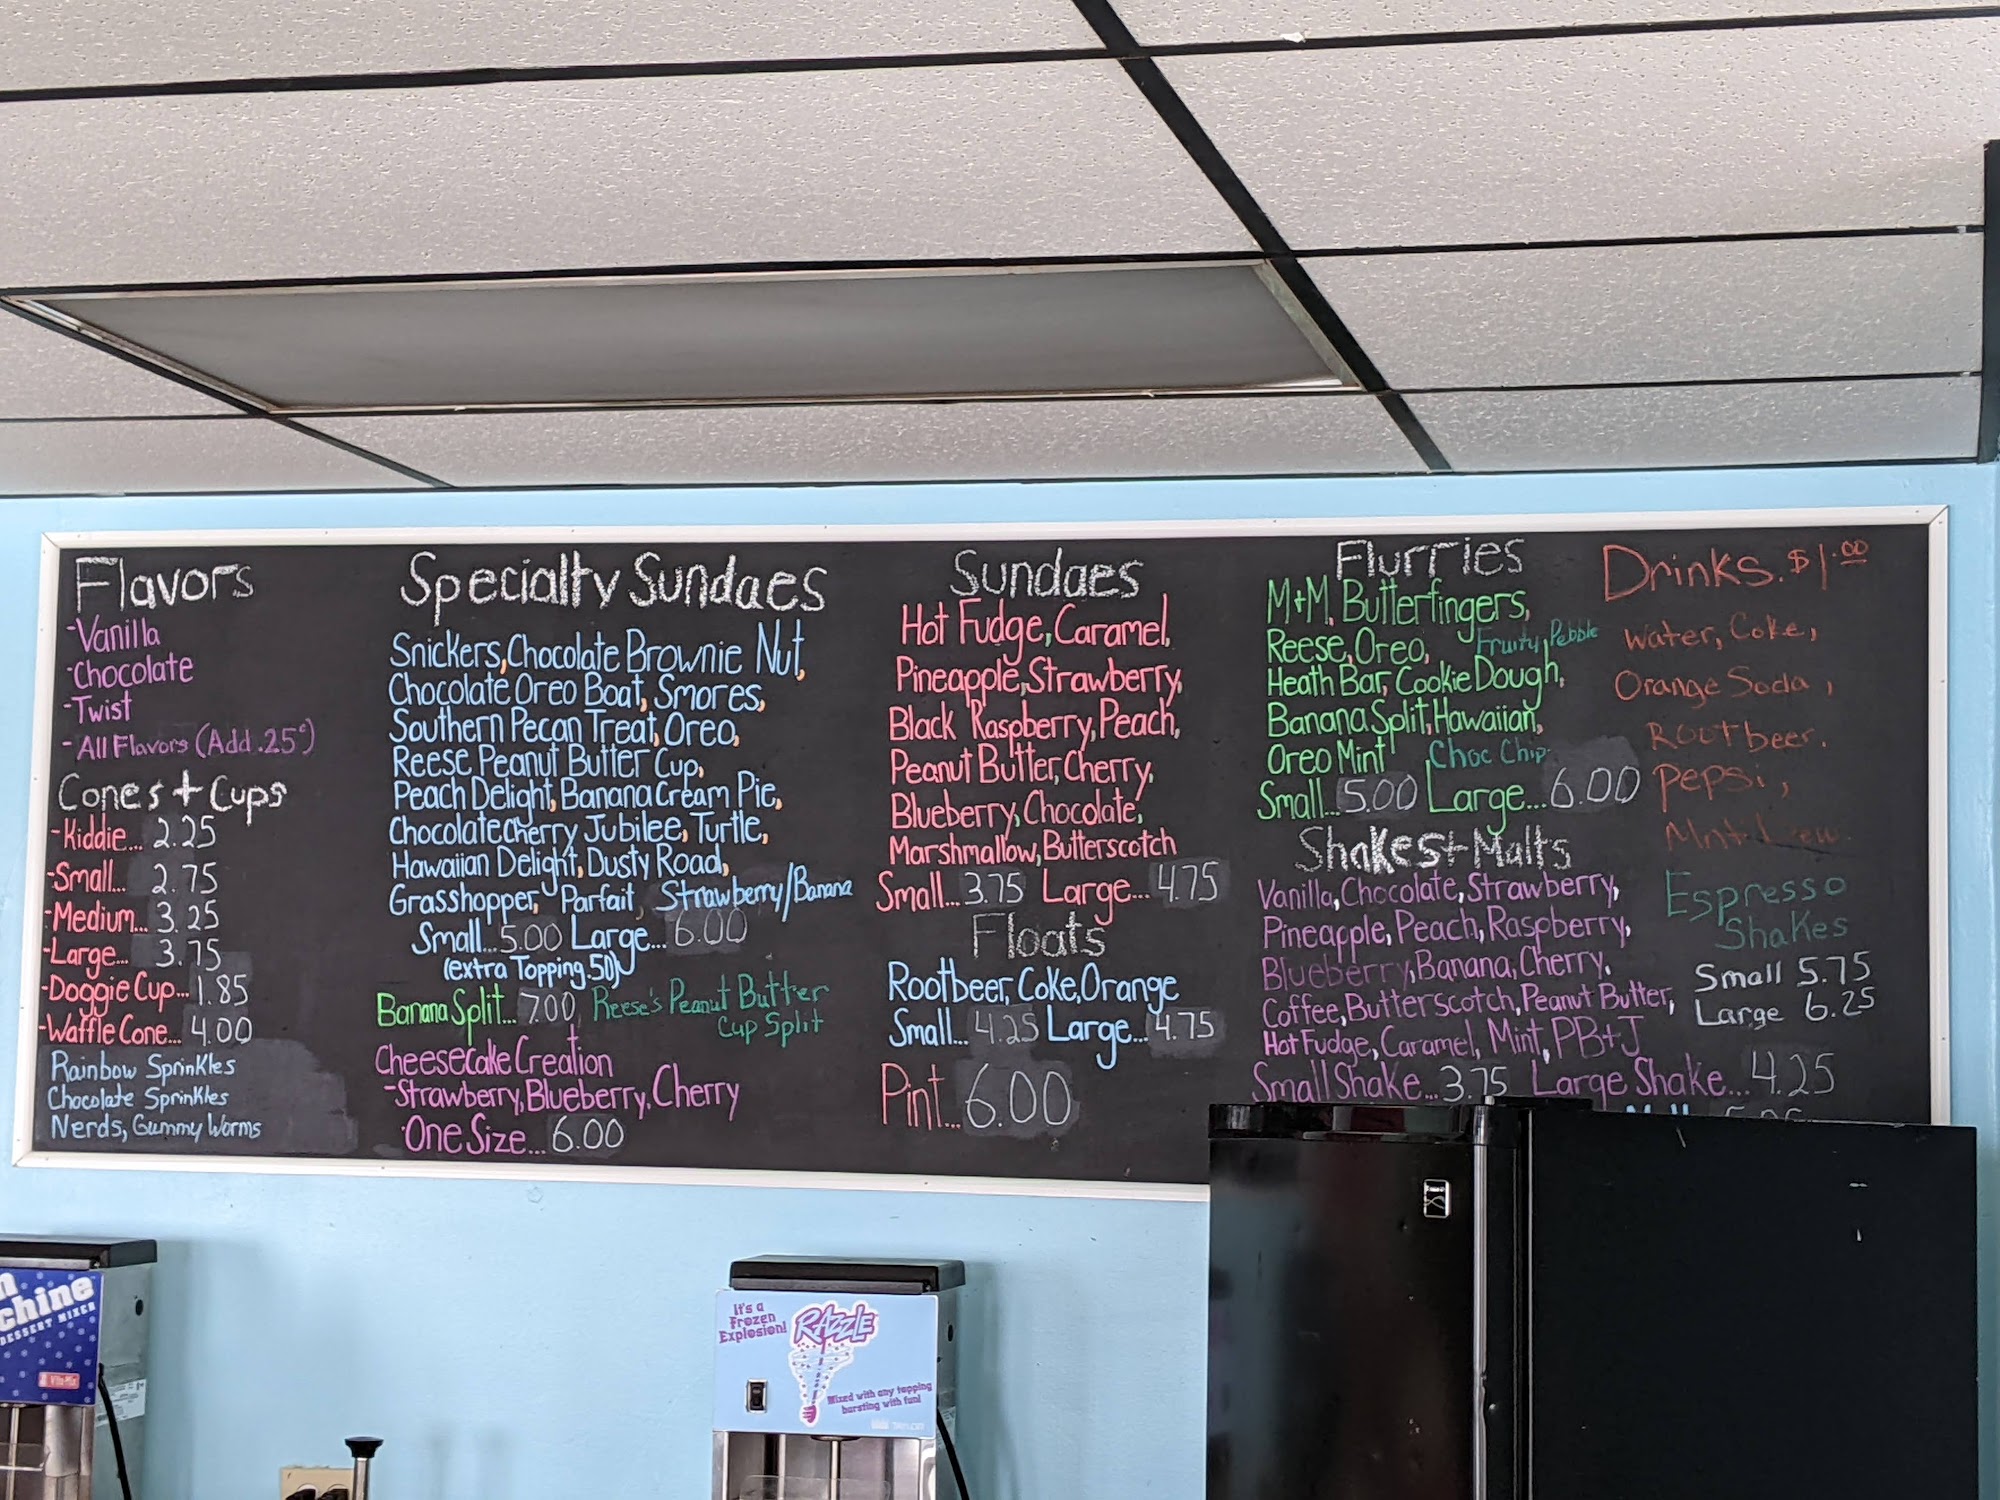 Flavors
-Vanilla
-Chocolate
-Twist
-All Flavors (Add .25¢)
Cones + Cups
-Kiddie... 2.25
-Small... 2.75
-Medium... 3.25
-Large... 3.75
-Doggie Cup... 1.85
-Waffle Cone... 4.00
Rainbow Sprinkles
Chocolate Sprinkles
Nerds, Gummy Worms
Specialty Sundaes
Snickers, Chocolate Brownie Nut,
Chocolate Oreo Boat, Smores,
Southern Pecan Treat, Oreo,
Reese Peanut Butter Cup,
Peach Delight, Banana Cream Pie,
Chocolate Cherry Jubilee, Turtle,
Hawaiian Delight, Dusty Road,
Grasshopper, Parfait, Strawberry/Banana
Small... 5.00 Large... 6.00
(extra Topping .50)
Banana Split... 7.00 Reese's Peanut Butter
Cup Split
Cheesecake Creation
-Strawberry, Blueberry, Cherry
One Size... 6.00
Sundaes
Hot Fudge, Caramel,
Pineapple, Strawberry,
Black Raspberry, Peach,
Peanut Butter, Cherry,
Blueberry, Chocolate,
Marshmallow, Butterscotch
Small... 3.75 Large... 4.75
Floats
Rootbeer, Coke, Orange
Small... 4.25 Large... 4.75
Pint... 6.00
Flurries
M+M, Butterfingers,
Reese, Oreo, Fruity Pebble
Heath Bar, Cookie Dough,
Banana Split, Hawaiian,
Oreo Mint Choc Chip
Small... 5.00 Large... 6.00
Shakes + Malts
Vanilla, Chocolate, Strawberry,
Pineapple, Peach, Raspberry,
Blueberry, Banana, Cherry,
Coffee, Butterscotch, Peanut Butter,
Hot Fudge, Caramel, Mint, PB+J
Small Shake... 3.75 Large Shake... 4.25
Drinks. $1.00
Water, Coke,
Orange Soda,
Rootbeer.
Pepsi,
Mnt Dew.
Espresso
Shakes
Small 5.75
Large 6.25
chine
DESSERT MIXER
Vita-Mix
It's a
Frozen
Explosion!
RAZZLE
Mixed with any topping
bursting with fun!